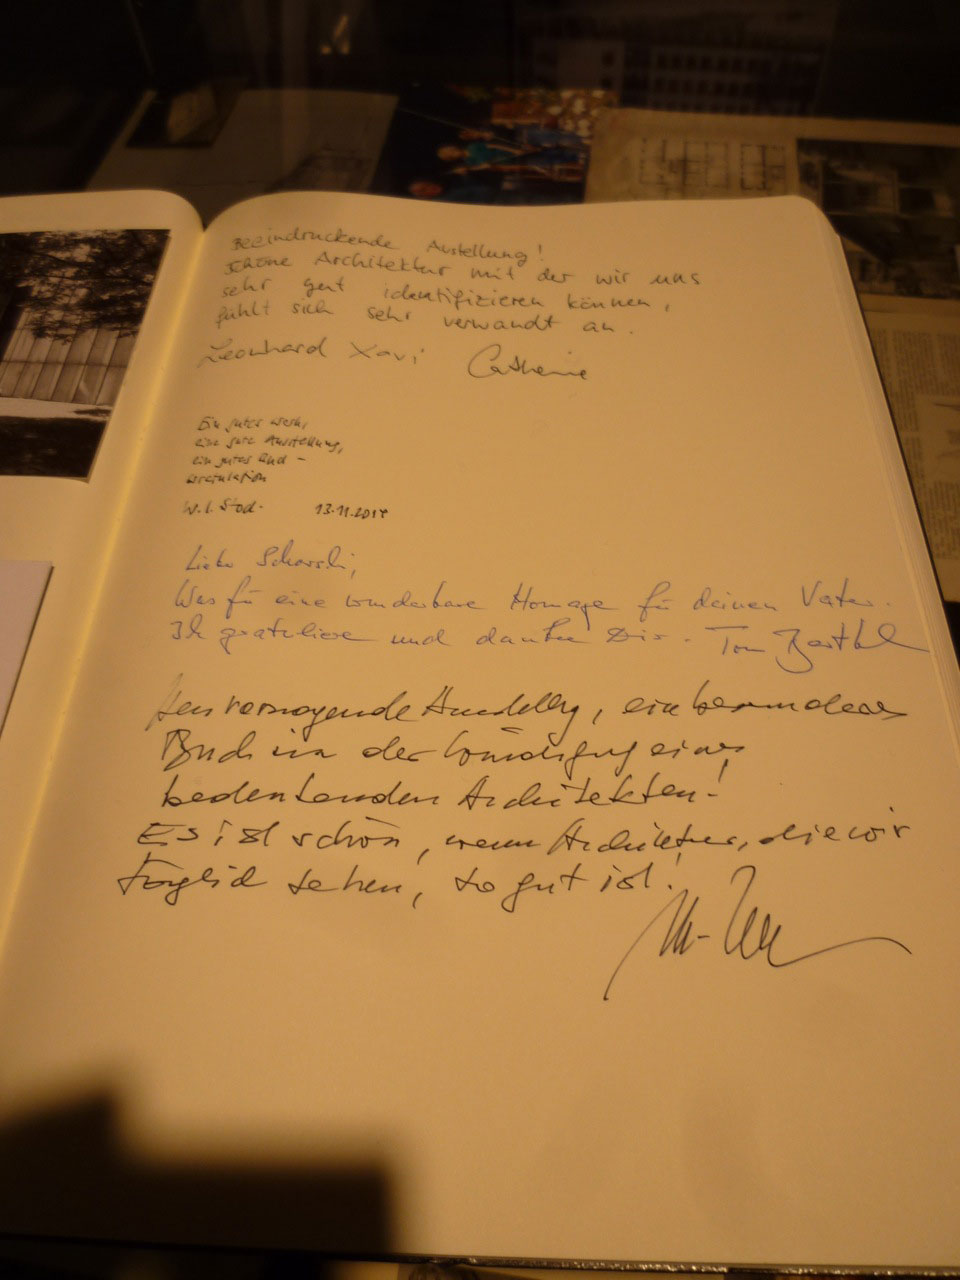 Beeindruckende Austellung!
schöne Architektur mit der wir uns
sehr gut identifizieren können,
fühlt sich sehr verwandt an.
Leonhard Xavi Catherine
Ein gutes Werk,
eine gute Ausstellung,
ein gutes Buch –
Gratulation
13.11.2014
Liebe
Was für eine wunderbare Homage für deinen Vater.
Ich gratuliere und danke Dir. Tom
Hervorragende Ausstellung, ein besonderes
Buch in der Würdigung eines
bedeutenden Architekten!
Es ist schön, wenn Architektur, die wir
täglich sehen, so gut ist!